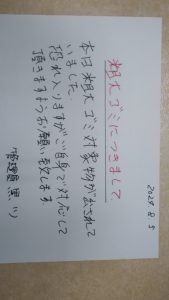 2024.8.5
粗大ゴミにつきまして
本日粗大ゴミ対象物が出されて
いました。
恐れ入りますがご自身で対応して
頂きますようお願い致します
管理員